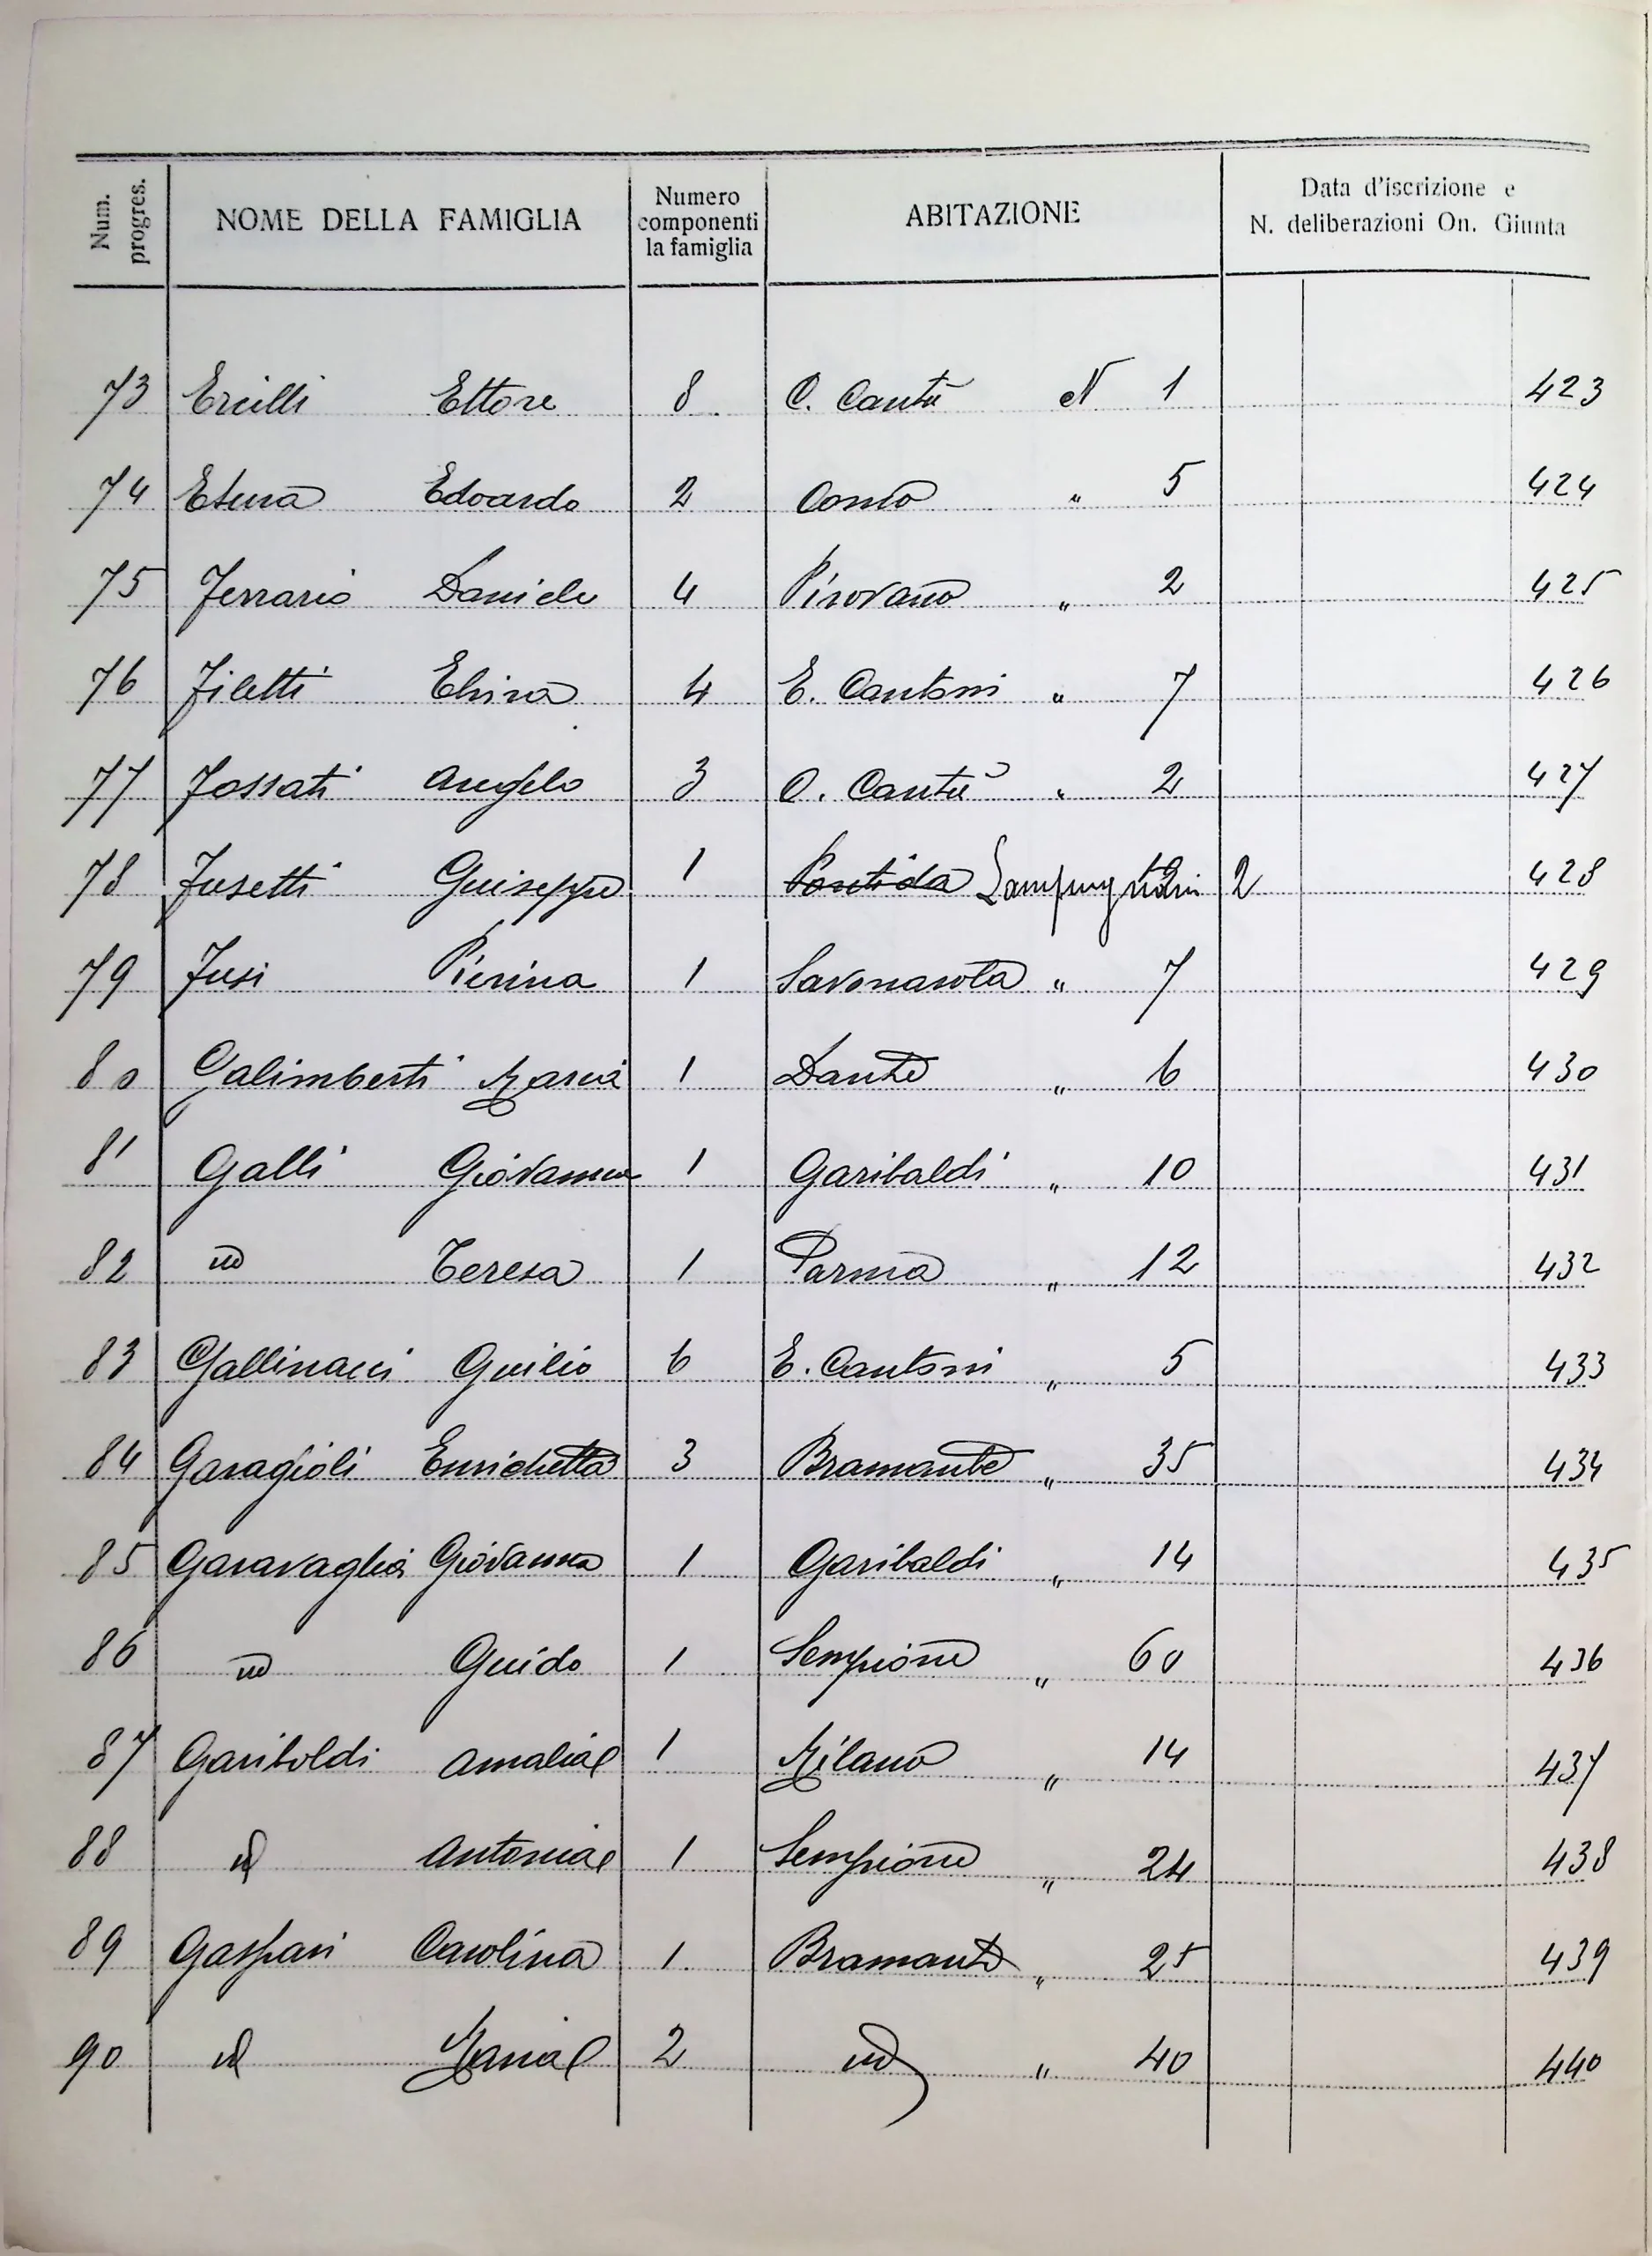 Num. progres. NOME DELLA FAMIGLIA Numero componenti la famiglia ABITAZIONE Data d'iscrizione e N. deliberazioni On. Giunta
73 Ercilli Ettore 8 C. Cantù N 1 423
74 Edoardo 2 Como " 5 424
75 Ferrario Daniele 4 Pirovano " 2 425
76 Filetti Elvira 4 E. Cantoni " 7 426
77 Fossati Angelo 3 C. Cantù " 2 427
78 Fusetti Giuseppe 1 Pontida 2 428
79 Fusi Pierina 1 Savonarola " 7 429
80 Galimberti Maria 1 Dante " 6 430
81 Galli Giovanna 1 Garibaldi " 10 431
82 id Teresa 1 Parma " 12 432
83 Gallinacci Giulio 6 E. Cantoni " 5 433
84 Garagioli Enrichetta 3 Bramante " 35 434
85 Garavaglia Giovanna 1 Garibaldi " 14 435
86 id Guido 1 Sempione " 60 436
87 Gariboldi Amalia 1 Milano " 14 437
88 id Antonia 1 Sempione " 24 438
89 Gaspari Carolina 1 Bramante " 25 439
90 id Maria 2 id " 40 440